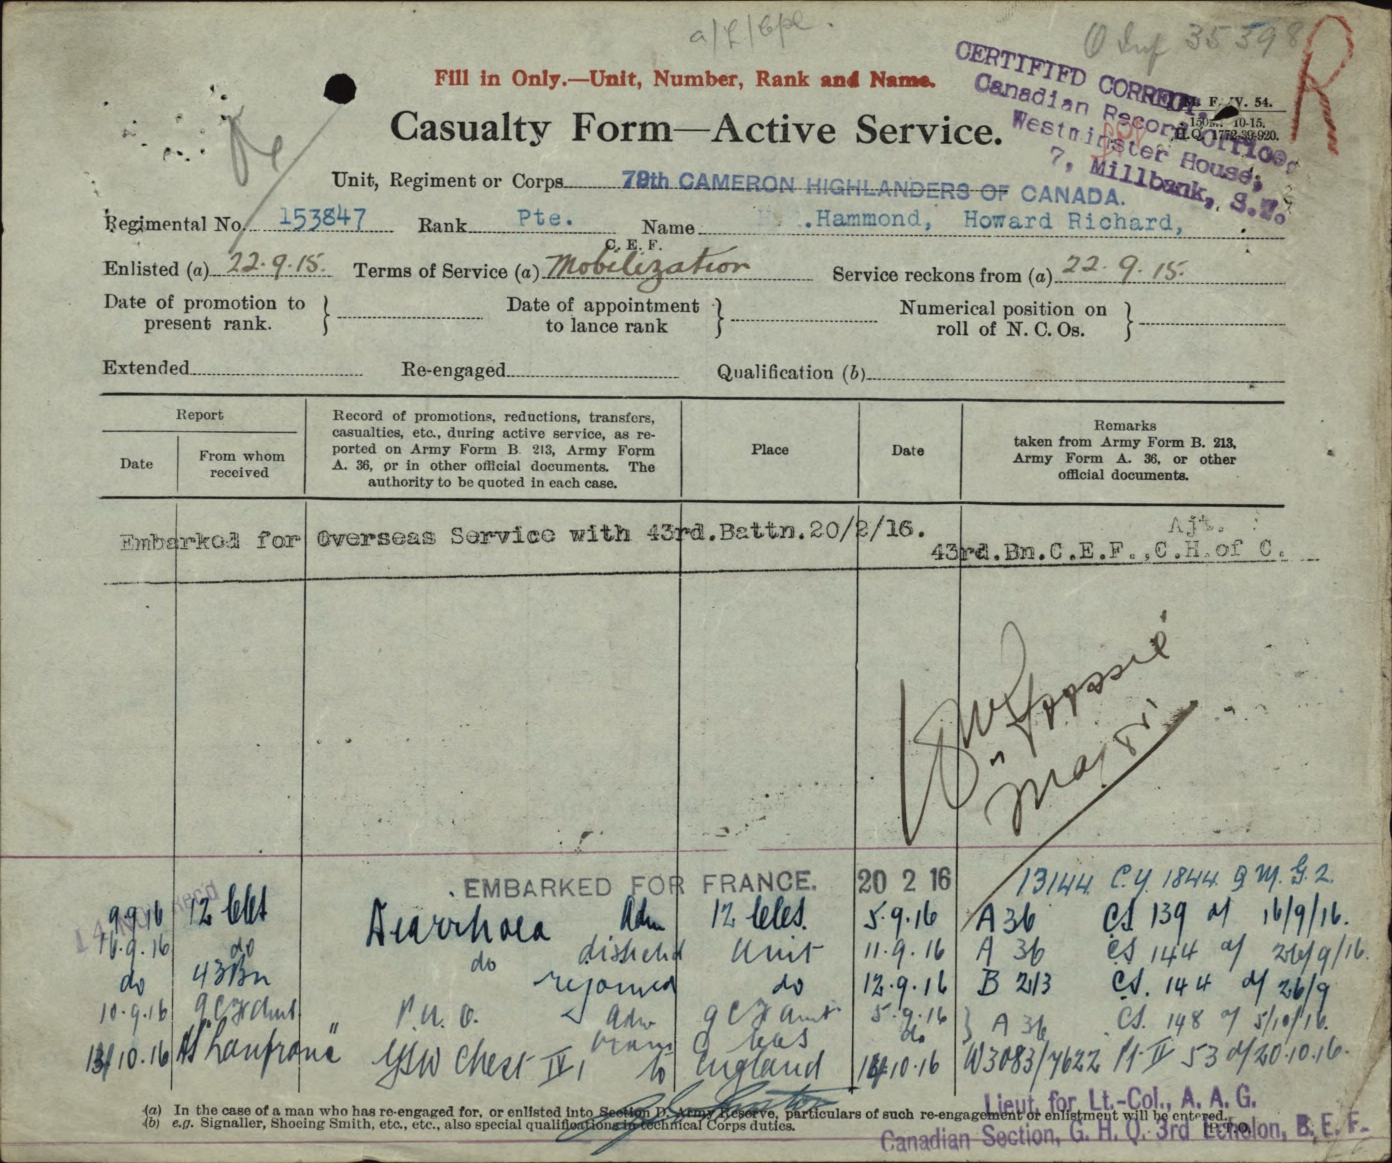 a/L/Cpl.
O Inf 35398
R
Fill in Only.—Unit, Number, Rank and Name.
CERTIFIED CORRECT,
Canadian Record Office,
Westminster House,
7, Millbank, S.W.
F. W. 54.
10-15.
H.Q. 1772-39-920.
Casualty Form—Active Service.
Unit, Regiment or Corps 79th CAMERON HIGHLANDERS OF CANADA.
Regimental No. 153847 Rank Pte. Name Hammond, Howard Richard,
C. E. F.
Enlisted (a) 22.9.15. Terms of Service (a) Mobilization Service reckons from (a) 22.9.15.
Date of promotion to present rank. } Date of appointment to lance rank } Numerical position on roll of N. C. Os. }
Extended Re-engaged Qualification (b)
Report
Date
From whom received
Record of promotions, reductions, transfers,
casualties, etc., during active service, as re-
ported on Army Form B. 213, Army Form
A. 36, or in other official documents. The
authority to be quoted in each case.
Place
Date
Remarks
taken from Army Form B. 213,
Army Form A. 36, or other
official documents.
Embarked for Overseas Service with 43rd.Battn.20/2/16.
Ajt.
43rd.Bn.C.E.F.,C.H.of C.
Major
EMBARKED FOR FRANCE. 20 2 16 13144 C.Y. 1844 Q.M.G.2.
9.9.16 12 CCS Diarrhoea Adm 12 CCS. 5.9.16 A 36 CS 139 of 16/9/16.
16.9.16 do do dischd Unit 11.9.16 A 36 CS 144 of 26/9/16.
do 43 Bn rejoined do 12.9.16 B 213 CS. 144 of 26/9
10.9.16 P.U.O. Adm 5.9.16 } A 36 CS. 148 of 5/10/16.
Trans CCS do
13/10.16 GSW Chest IV, to England 14.10.16 W3083/7622 Pt II 53 of 20.10.16.
(a) In the case of a man who has re-engaged for, or enlisted into Section D. Army Reserve, particulars of such re-engagement or enlistment will be entered.
(b) e.g. Signaller, Shoeing Smith, etc., etc., also special qualifications in technical Corps duties.
P.T.O.
Lieut. for Lt.-Col., A. A. G.
Canadian Section, G. H. Q. 3rd Echelon, B. E. F.